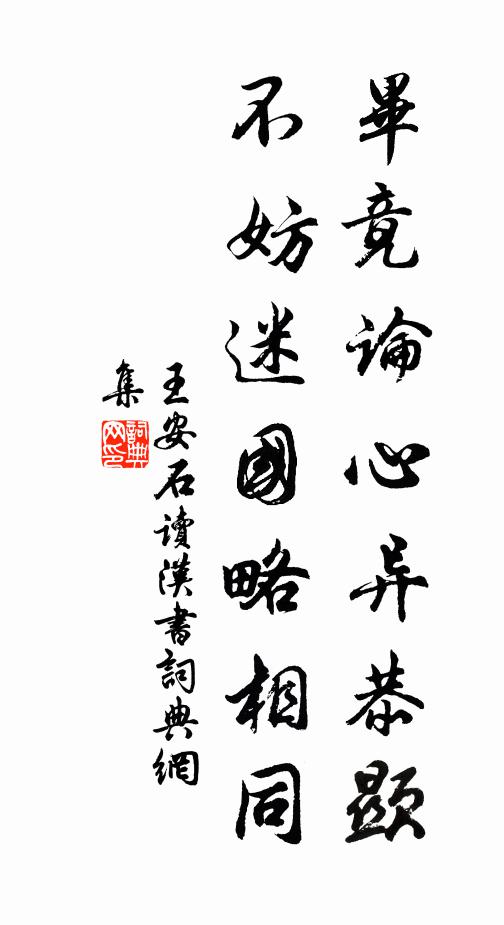 畢竟論心异恭顯
不妨迷國略相同
王安石讀漢書詞典網
集
詞典网印